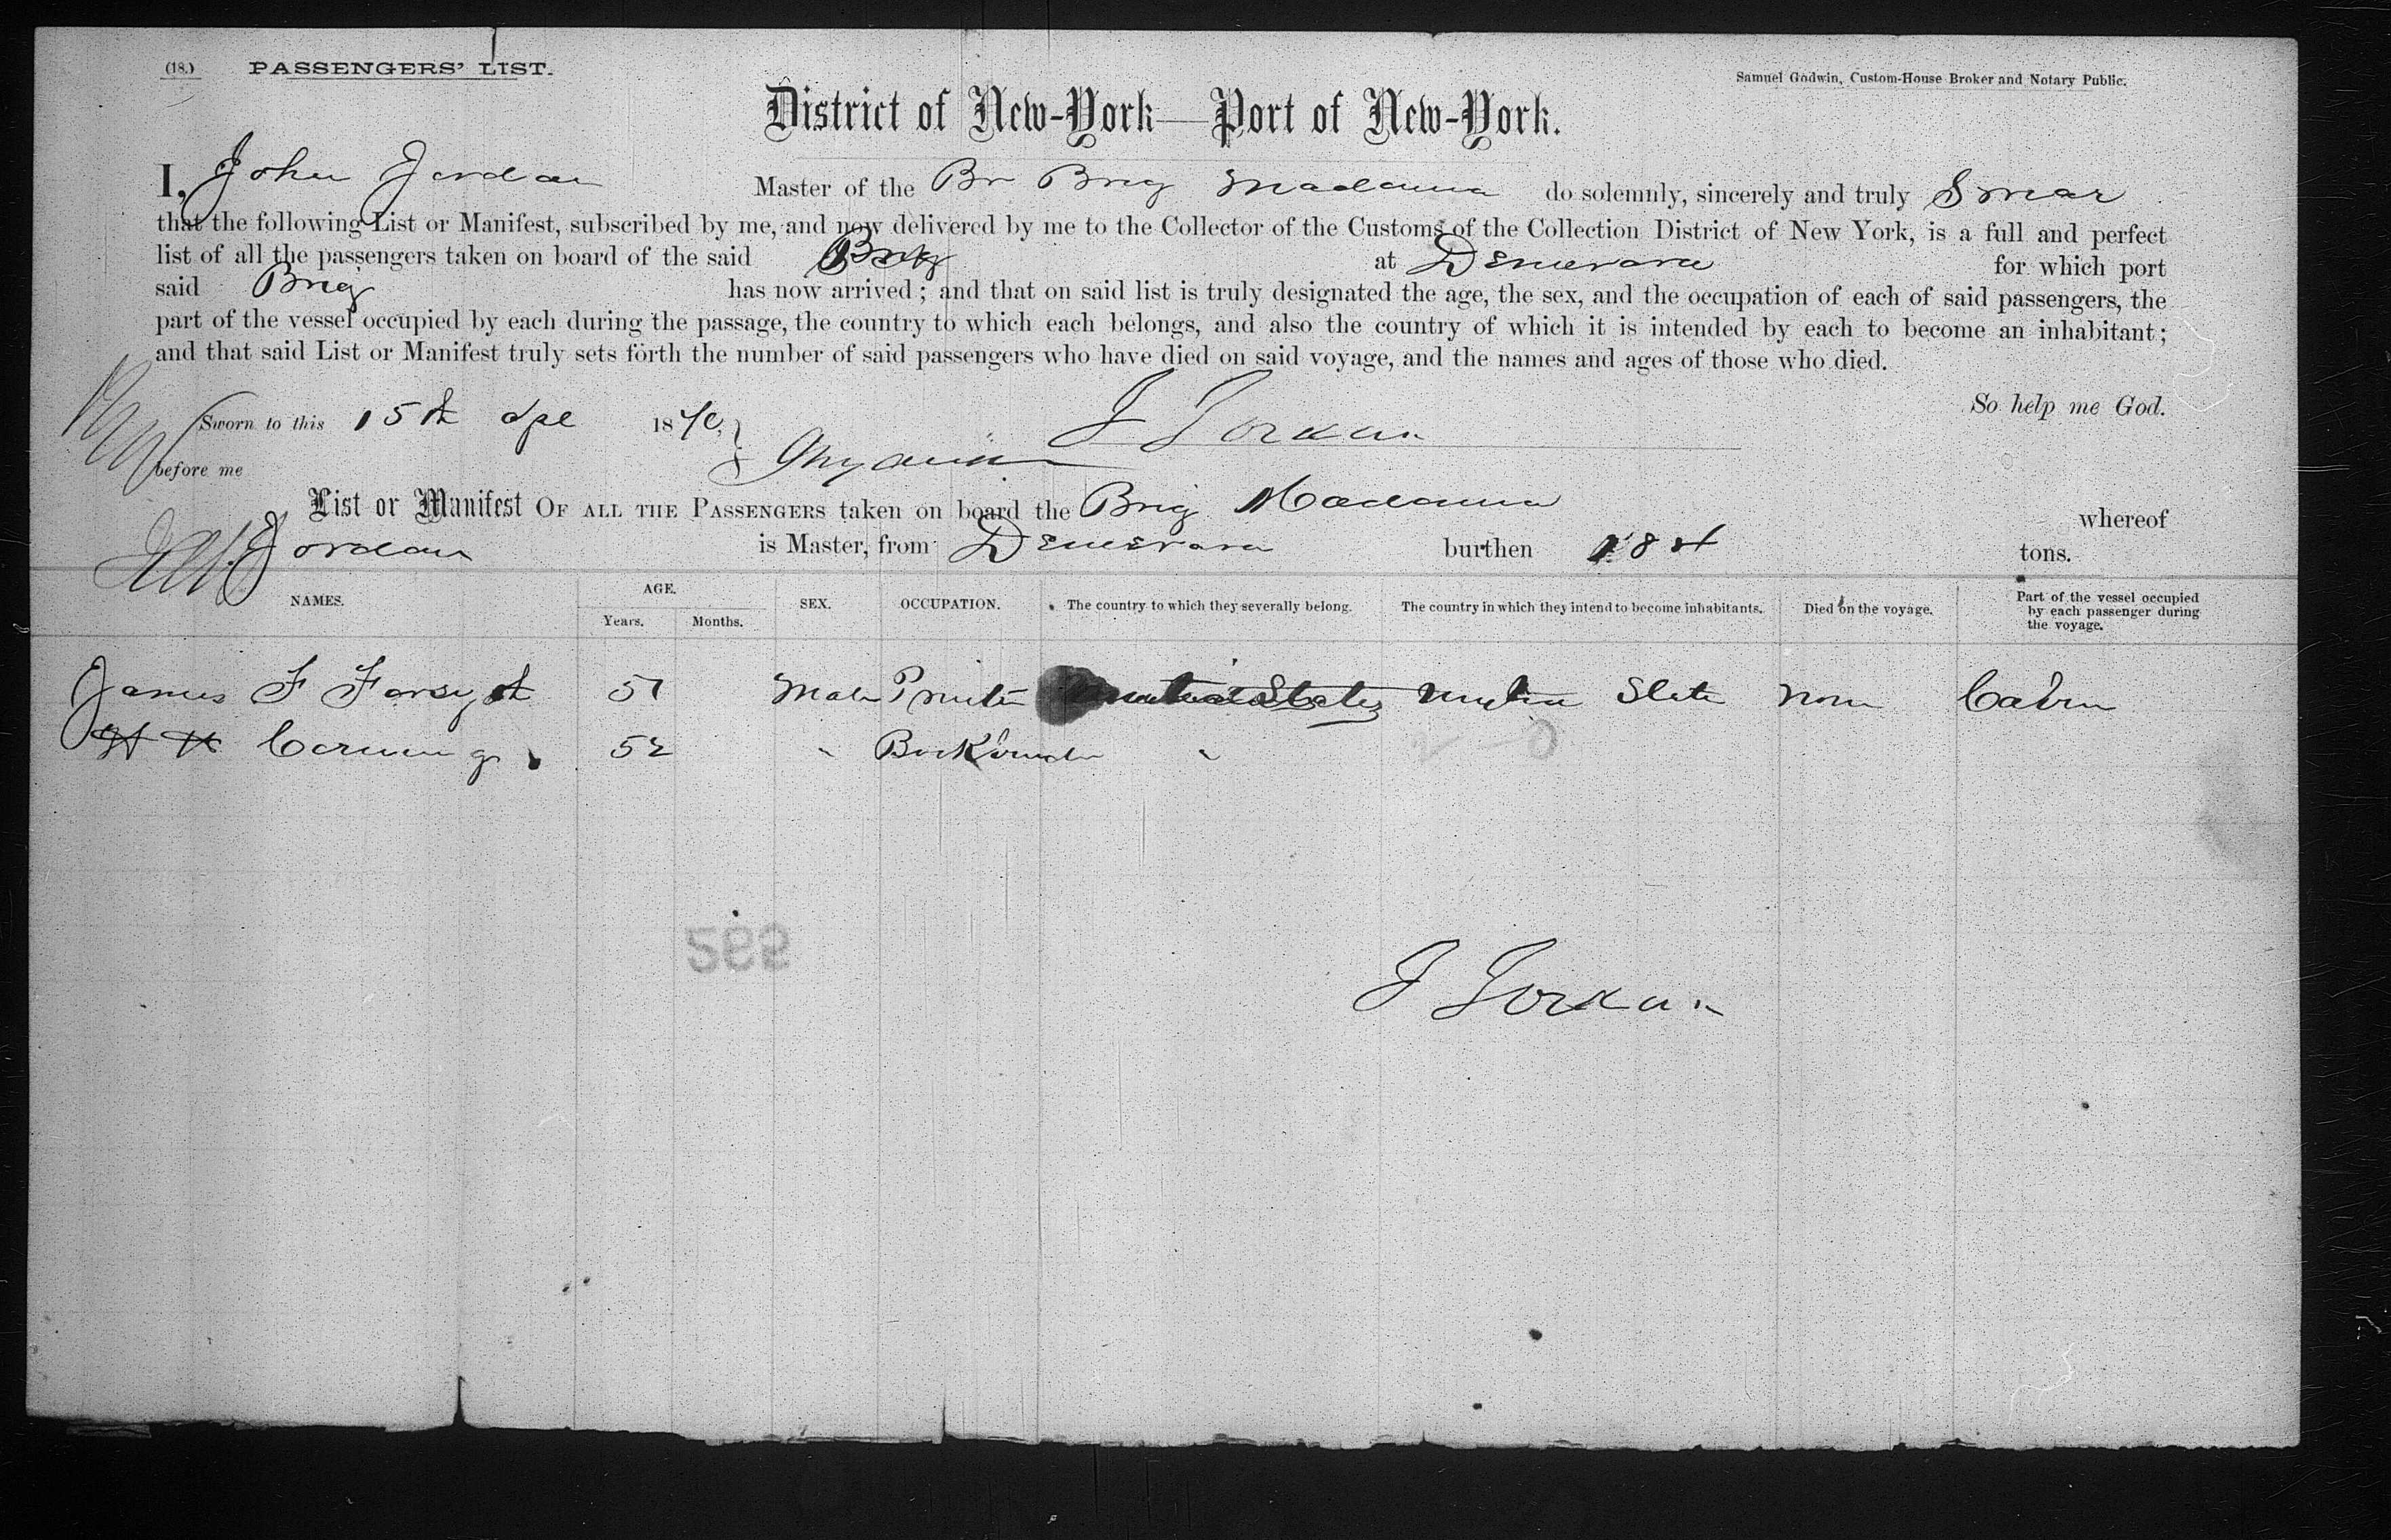 (18.) PASSENGERS' LIST.
Samuel Godwin, Custom-House Broker and Notary Public.
District of New-York—Port of New-York.
I, John Jordan Master of the Br Brig Madanna do solemnly, sincerely and truly Swear
that the following List or Manifest, subscribed by me, and now delivered by me to the Collector of the Customs of the Collection District of New York, is a full and perfect
list of all the passengers taken on board of the said Brig at Demerara for which port
said Brig has now arrived; and that on said list is truly designated the age, the sex, and the occupation of each of said passengers, the
part of the vessel occupied by each during the passage, the country to which each belongs, and also the country of which it is intended by each to become an inhabitant;
and that said List or Manifest truly sets forth the number of said passengers who have died on said voyage, and the names and ages of those who died.
So help me God.
Sworn to this 15th Apl 1870, J Jordan
before me
List or Manifest OF ALL THE PASSENGERS taken on board the Brig Madanna whereof
Jordan is Master, from Demerara burthen 184 tons.
NAMES. AGE. Years. Months. SEX. OCCUPATION. The country to which they severally belong. The country in which they intend to become inhabitants. Died on the voyage. Part of the vessel occupied by each passenger during the voyage.
James F Forsyth 51 Male Printer United States United State None Cabin
52 " Bookbinder "
585
J Jordan